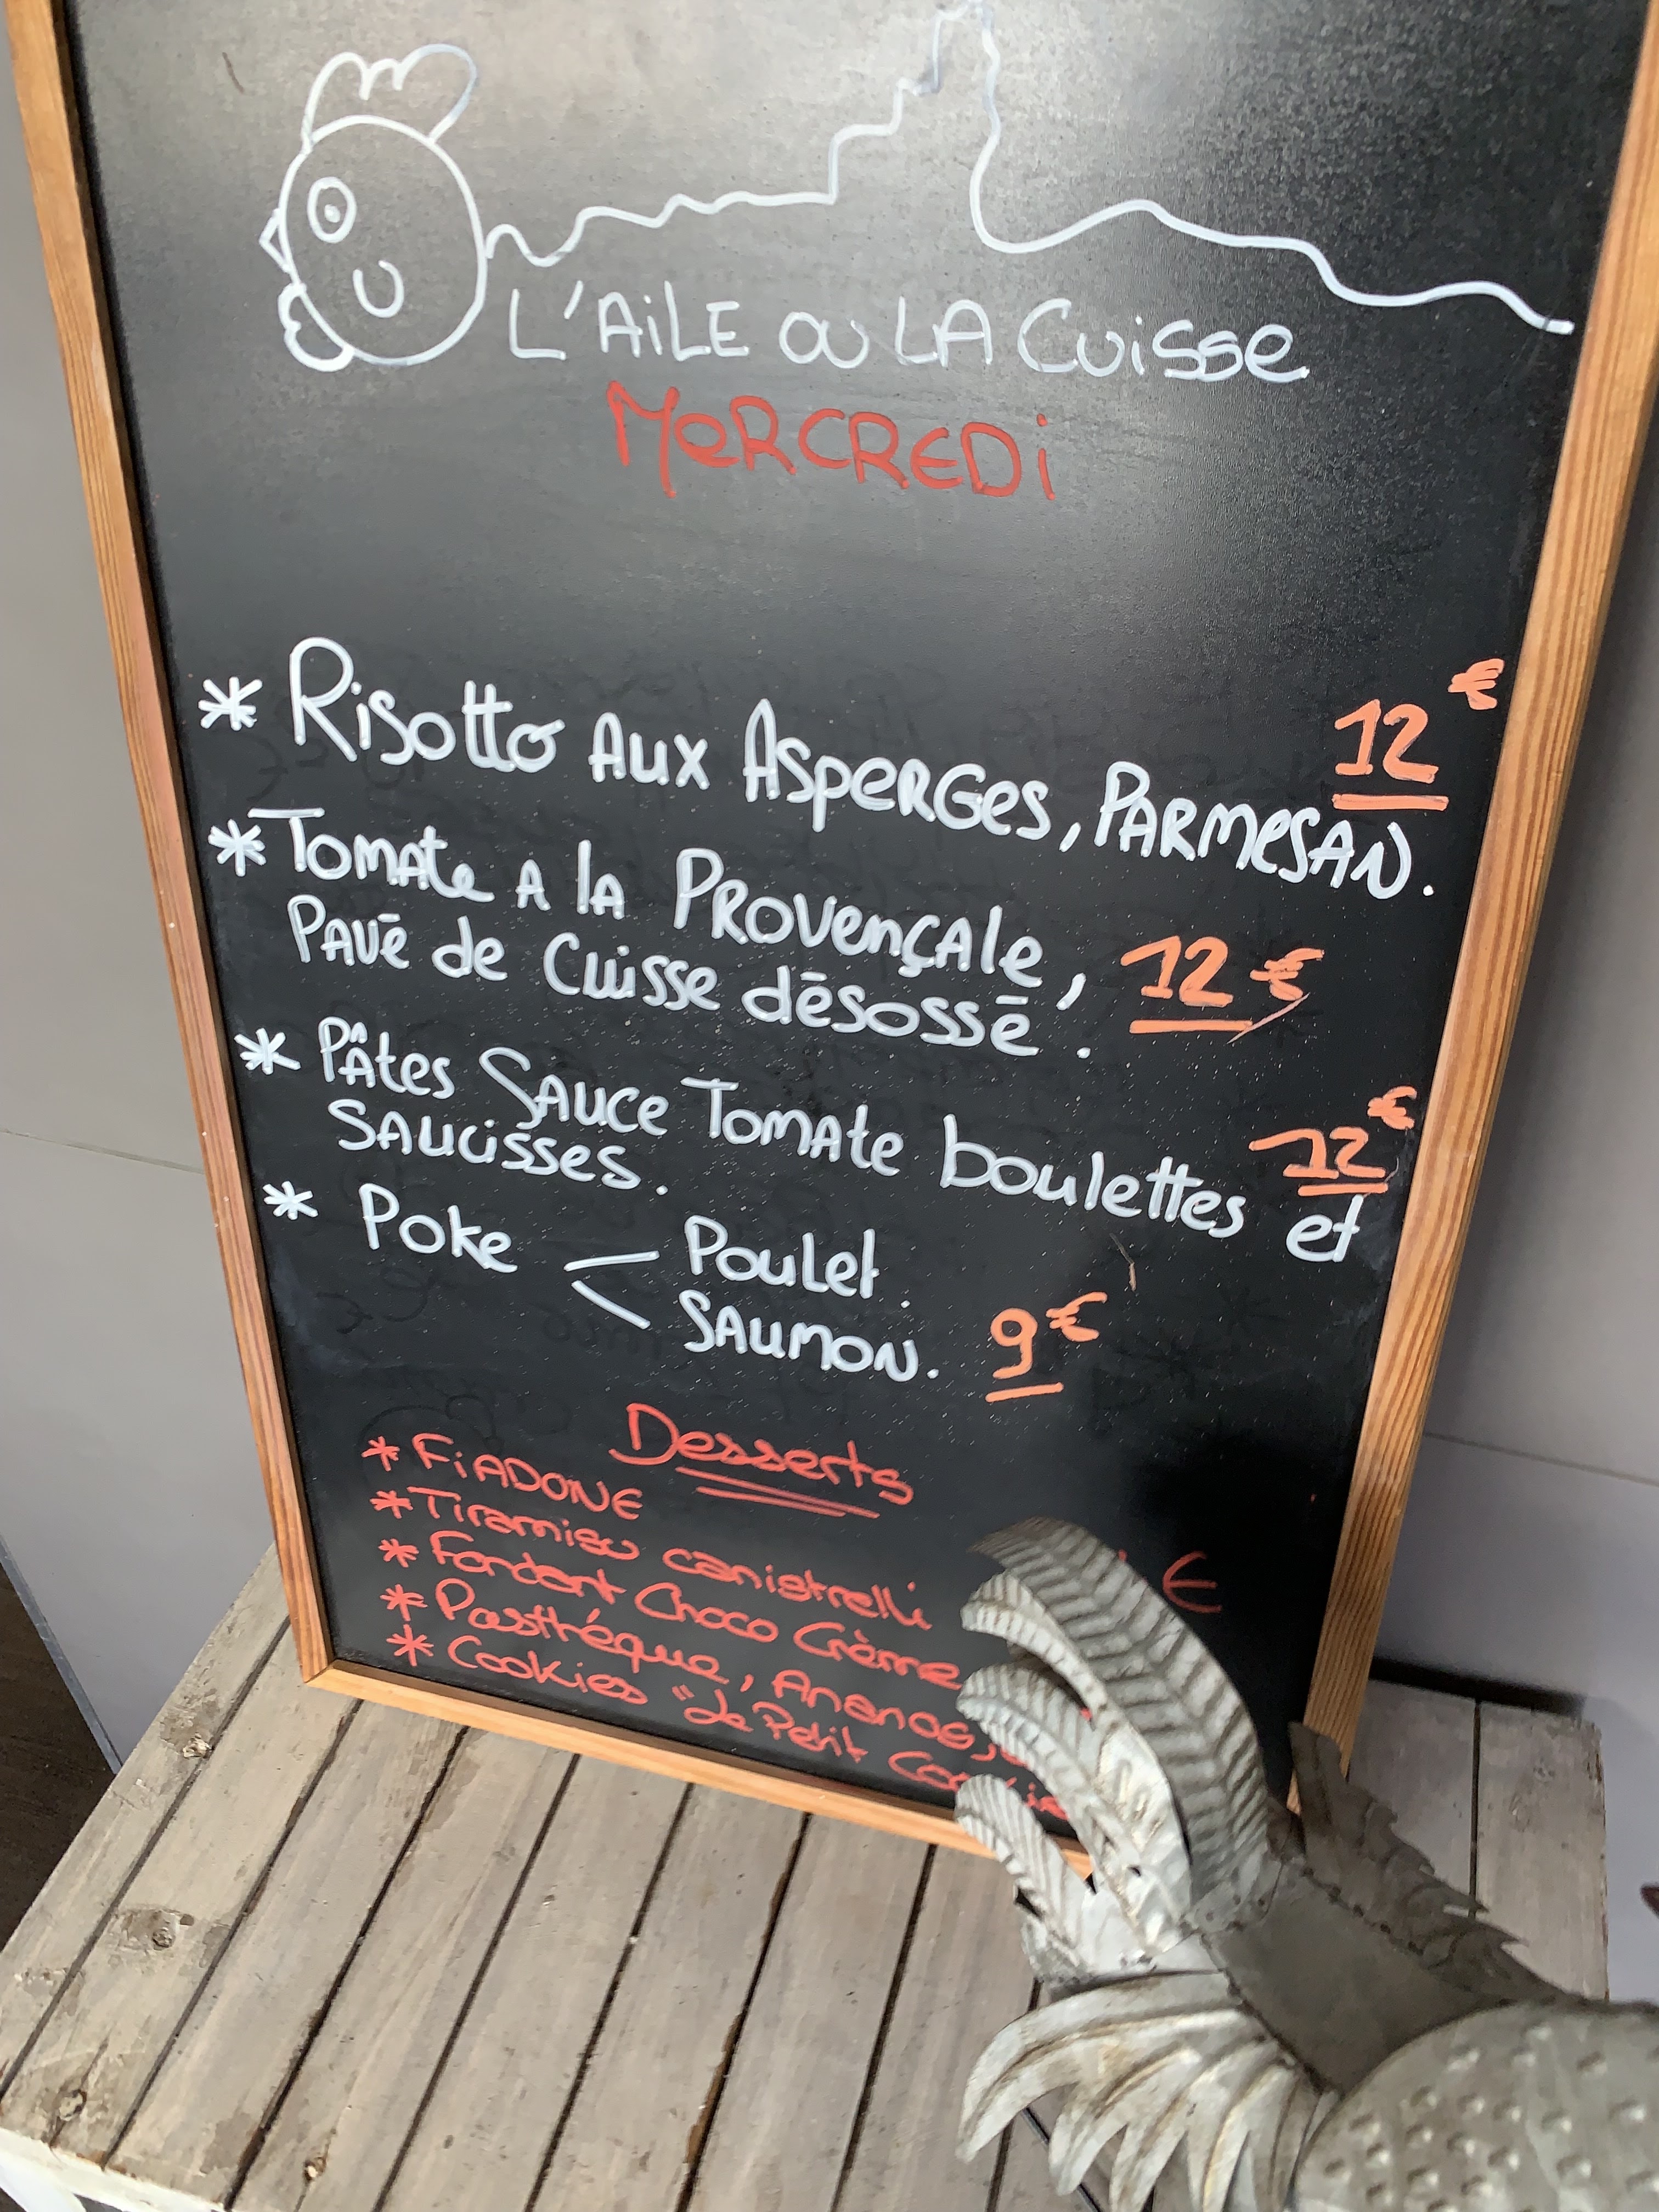 L'AiLE OU LA CUISSE
MERCREDi
* Risotto AUX ASPERGES, PARMESAN. 12€
* TOMATE A LA PROVENÇALE,
PAVÉ de Cuisse désossé. 12€
* PÂtes SAUCE TOMATE boulettes et 12€
SAUCISSES.
* Poke Poulet.
SAUMON. 9€
Desserts
* FiADONE
* Tiramisu canistrelli €
* Fondant Choco Crème
* Pasthéque, Ananas,
* Cookies "Le Petit